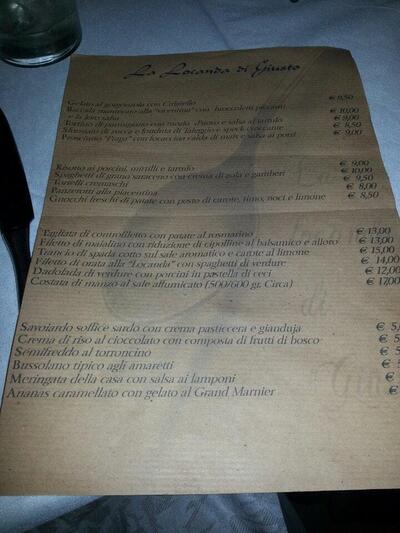 La Locanda di Giusto
Gelato al gorgonzola con Culatello € 8,50
Baccalà mantecato alla "vicentina" con broccoletti piccanti
e la loro salsa € 10,00
Tortino di parmigiano con rucola, Parma e salsa al tartufo € 9,00
Sformato di zucca e fonduta di Taleggio e speck croccante € 8,50
Prosciutto "Praga" con focaccia calda di mais e salsa ai porri € 9,00
Risotto ai porcini, mirtilli e tartufo € 9,00
Spaghetti di grano saraceno con crema di sola e gamberi € 10,00
Tortelli cremaschi € 9,50
Panzerotti alla piacentina € 8,00
Gnocchi freschi di patate con pesto di carote, timo, noci e limone € 8,50
Tagliata di controfiletto con patate al rosmarino € 13,00
Filetto di maialino con riduzione di cipolline al balsamico e alloro € 13,00
Trancio di spada cotto sul sale aromatico e carote al limone € 15,00
Filetto di orata alla "Locanda" con spaghetti di verdure € 14,00
Dadolada di verdure con porcini in pastella di ceci € 12,00
Costata di manzo al sale affumicato (500/600 gr. Circa) € 17,00
Savoiardo soffice sardo con crema pasticcera e gianduja € 5,
Crema di riso al cioccolato con composta di frutti di bosco € 5,
Semifreddo al torroncino € 5
Bussolano tipico agli amaretti € 5
Meringata della casa con salsa ai lamponi €
Ananas caramellato con gelato al Grand Marnier €